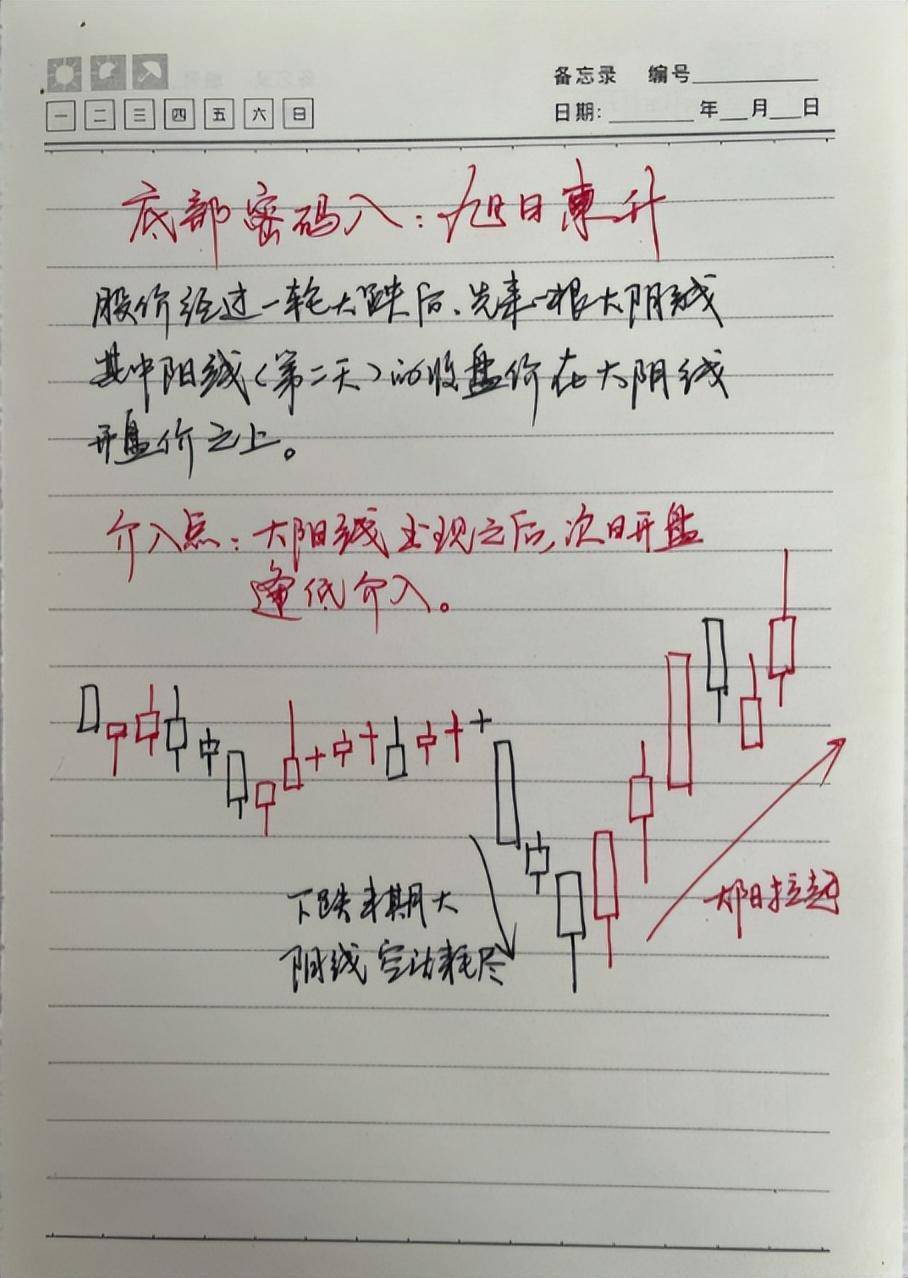 备忘录 编号
一 二 三 四 五 六 日
日期: 年 月 日
底部密码八:旭日東升
股价经过一轮大跌后、先来一根大阴线
其中阳线(第二天)的收盘价在大阴线
开盘价之上。
介入点:大阳线出现之后,次日开盘
逢低介入。
下跌末期大
阴线空动耗尽
日拉起